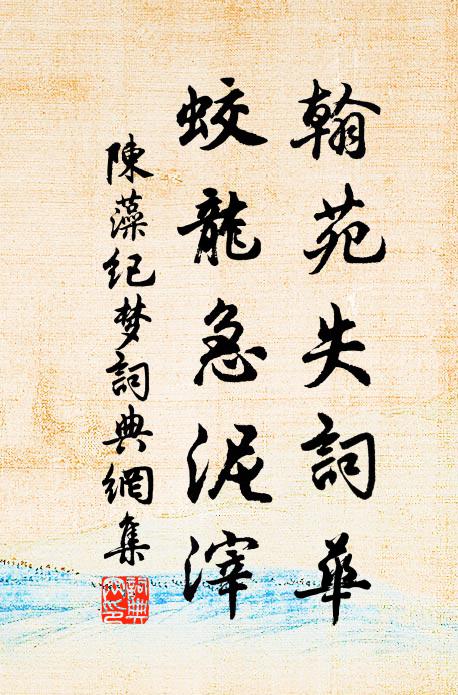 翰苑失詞華
蛟龍急泥滓
陳藻纪梦詞典網集